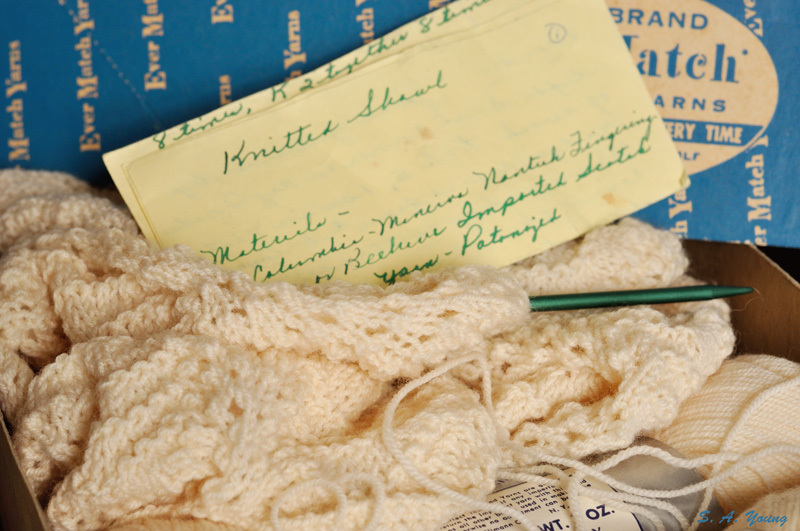 Match Yarns
Ever Match Yarns
Ever Match
Ever Match Yarns
BRAND
Match
YARNS
ERY TIME
Ever Match Yarns
Yarns
8 times, K 2 together 8 times
1
Knitted Shawl
Materials -
Columbia-Minerva Nantuk Fingering
or Beehive Imported Scotch
Yarn - Patonized
WT. OZ.
S. A. Young